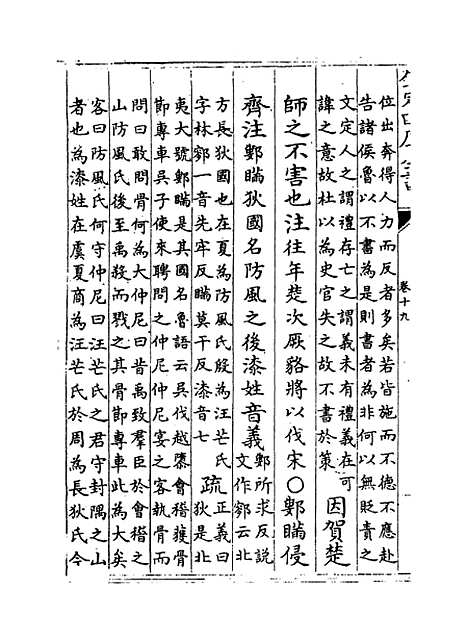 位出奔得人力而反者多矣若皆施而不德不應赴
告諸侯魯以不書為是則書者為非何以無貶責之
文定人之謂禮存亡之謂義未有禮義在可
諱之意故杜以為史官失之故不書於策
因賀楚
師之不害也注往年楚次厥貉將以伐宋〇鄋瞞侵
齊注鄋瞞狄國名防風之後漆姓音義
鄋所求反說
文作鄋云北
方長狄國也在夏為防風氏殷為汪芒氏
字林鄋一音先牢反瞞莫干反漆音七
疏
正義曰
狄是北
夷大號鄋瞞是其國名魯語云吳伐越隳會稽獲骨
節專車吳子使來聘問之仲尼仲尼宴之客執骨而
問曰敢問骨何為大仲尼曰昔禹致羣臣於會稽之
山防風氏後至禹殺而戮之其骨節專車此為大矣
客曰防風氏何守仲尼曰汪芒氏之君守封隅之山
者也為漆姓在虞夏商為汪芒氏於周為長狄氏今
卷十九